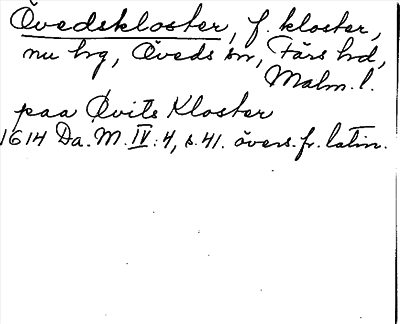 Övedskloster, f. kloster,
nu hrg, Öveds sn, Färs hd,
Malm. l.
paa Øvits Kloster
1614 Da. M. IV: 4, s. 41. övers. fr. latin.